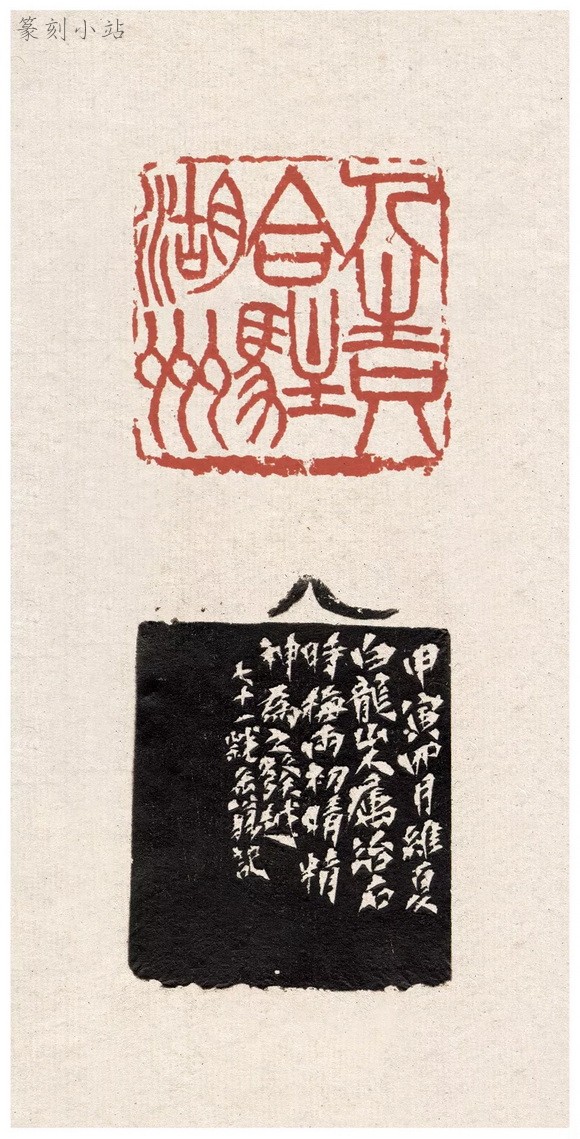 篆刻小站
人生只合駐湖州
甲寅四月維夏
白龍山人屬治石
時梅雨初晴精
神爲之發越
七十一歲缶記